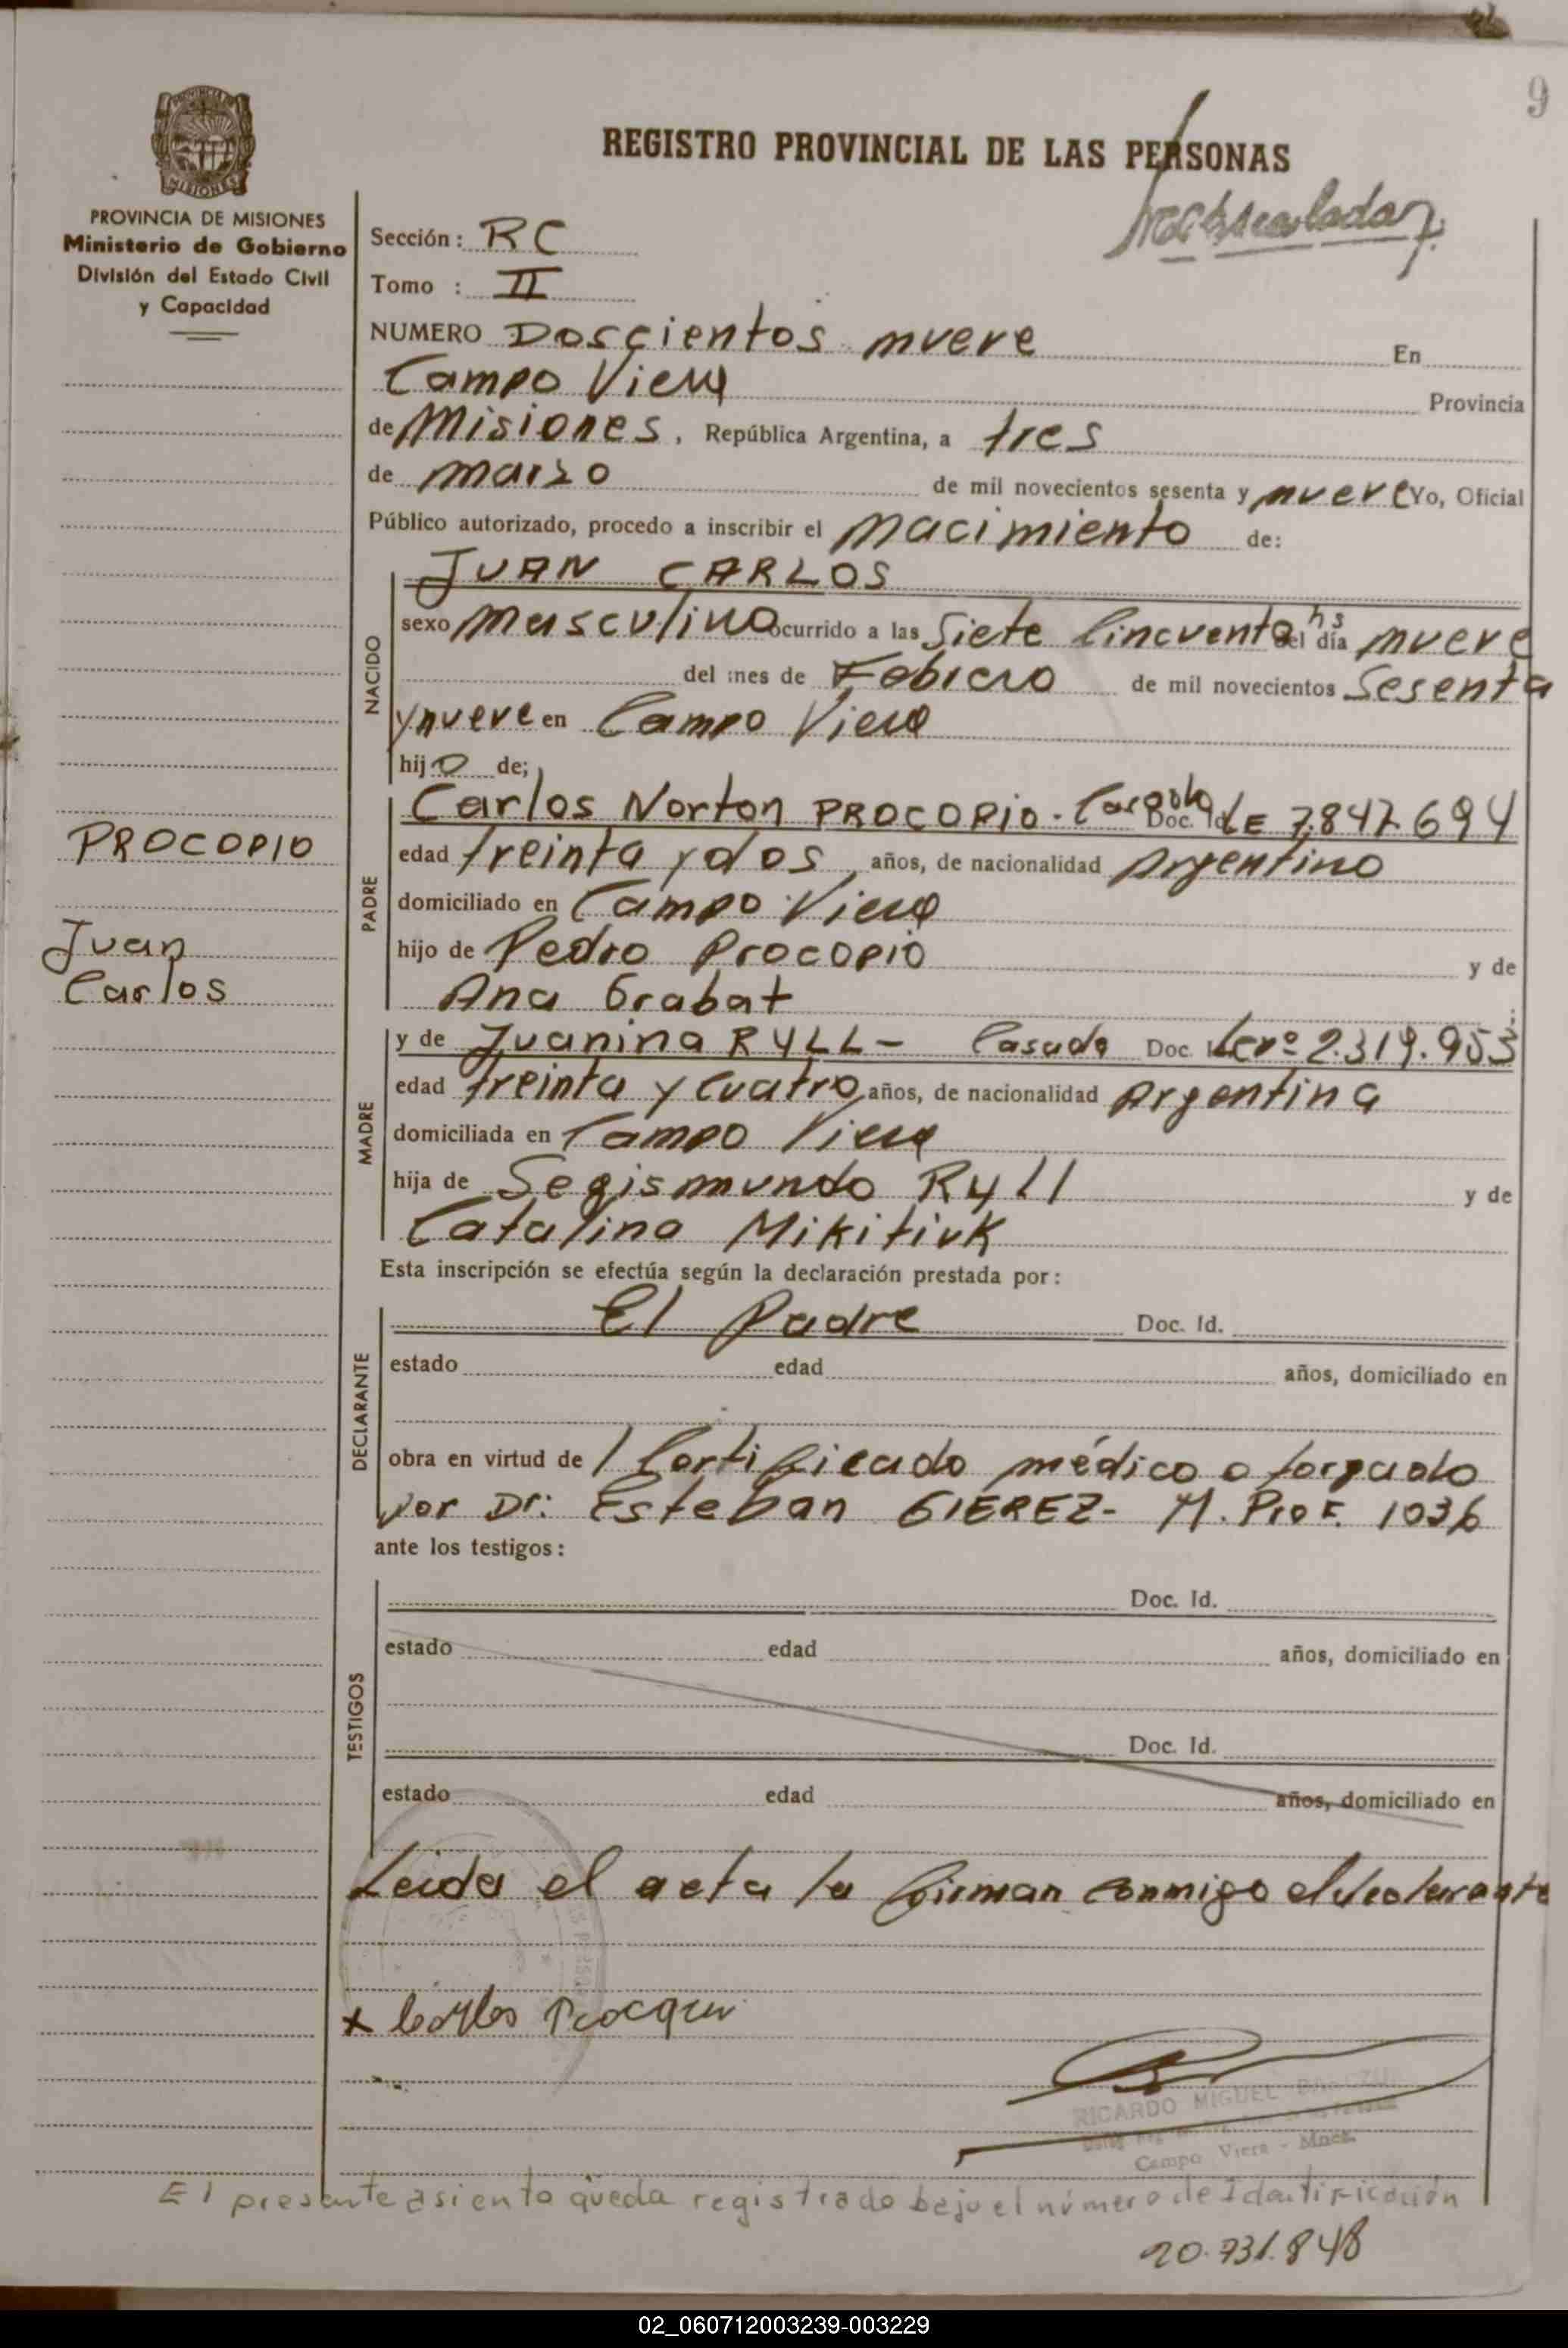 9
REGISTRO PROVINCIAL DE LAS PERSONAS
MISIONES
PROVINCIA DE MISIONES
Ministerio de Gobierno
División del Estado Civil
y Capacidad
Sección: RC
Tomo : II
NUMERO Doscientos nueve En
Campo Viera Provincia
de Misiones, República Argentina, a tres
de marzo de mil novecientos sesenta y nueve Yo, Oficial
Público autorizado, procedo a inscribir el nacimiento de:
NACIDO
JUAN CARLOS
sexo masculino ocurrido a las Siete Cincuenta hs del día nueve
del mes de Febrero de mil novecientos Sesenta
y nueve en Campo Viera
hijo de;
PROCOPIO
Juan
Carlos
PADRE
Carlos Norton PROCOPIO - Casado Doc. Id LE 7.847.694
edad treinta y dos años, de nacionalidad Argentino
domiciliado en Campo Viera
hijo de Pedro Procopio y de
Ana Grabat
MADRE
y de Juanina RYLL - Casada Doc. 2.319.953
edad treinta y cuatro años, de nacionalidad Argentina
domiciliada en Campo Viera
hija de Segismundo Ryll y de
Catalina Mikitiuk
Esta inscripción se efectúa según la declaración prestada por:
DECLARANTE
El Padre Doc. Id.
estado edad años, domiciliado en
obra en virtud de 1 Certificado médico otorgado
por Dr: Esteban GIEREZ- M. Prof. 1036
ante los testigos:
TESTIGOS
Doc. Id.
estado edad años, domiciliado en
Doc. Id.
estado edad años, domiciliado en
Leida el acta la firman conmigo el declarante
x Carlos
RICARDO MIGUEL
Campo Viera - Mnes.
El presente asiento queda registrado bajo el número de Identificación
20.731.848
02_060712003239-003229